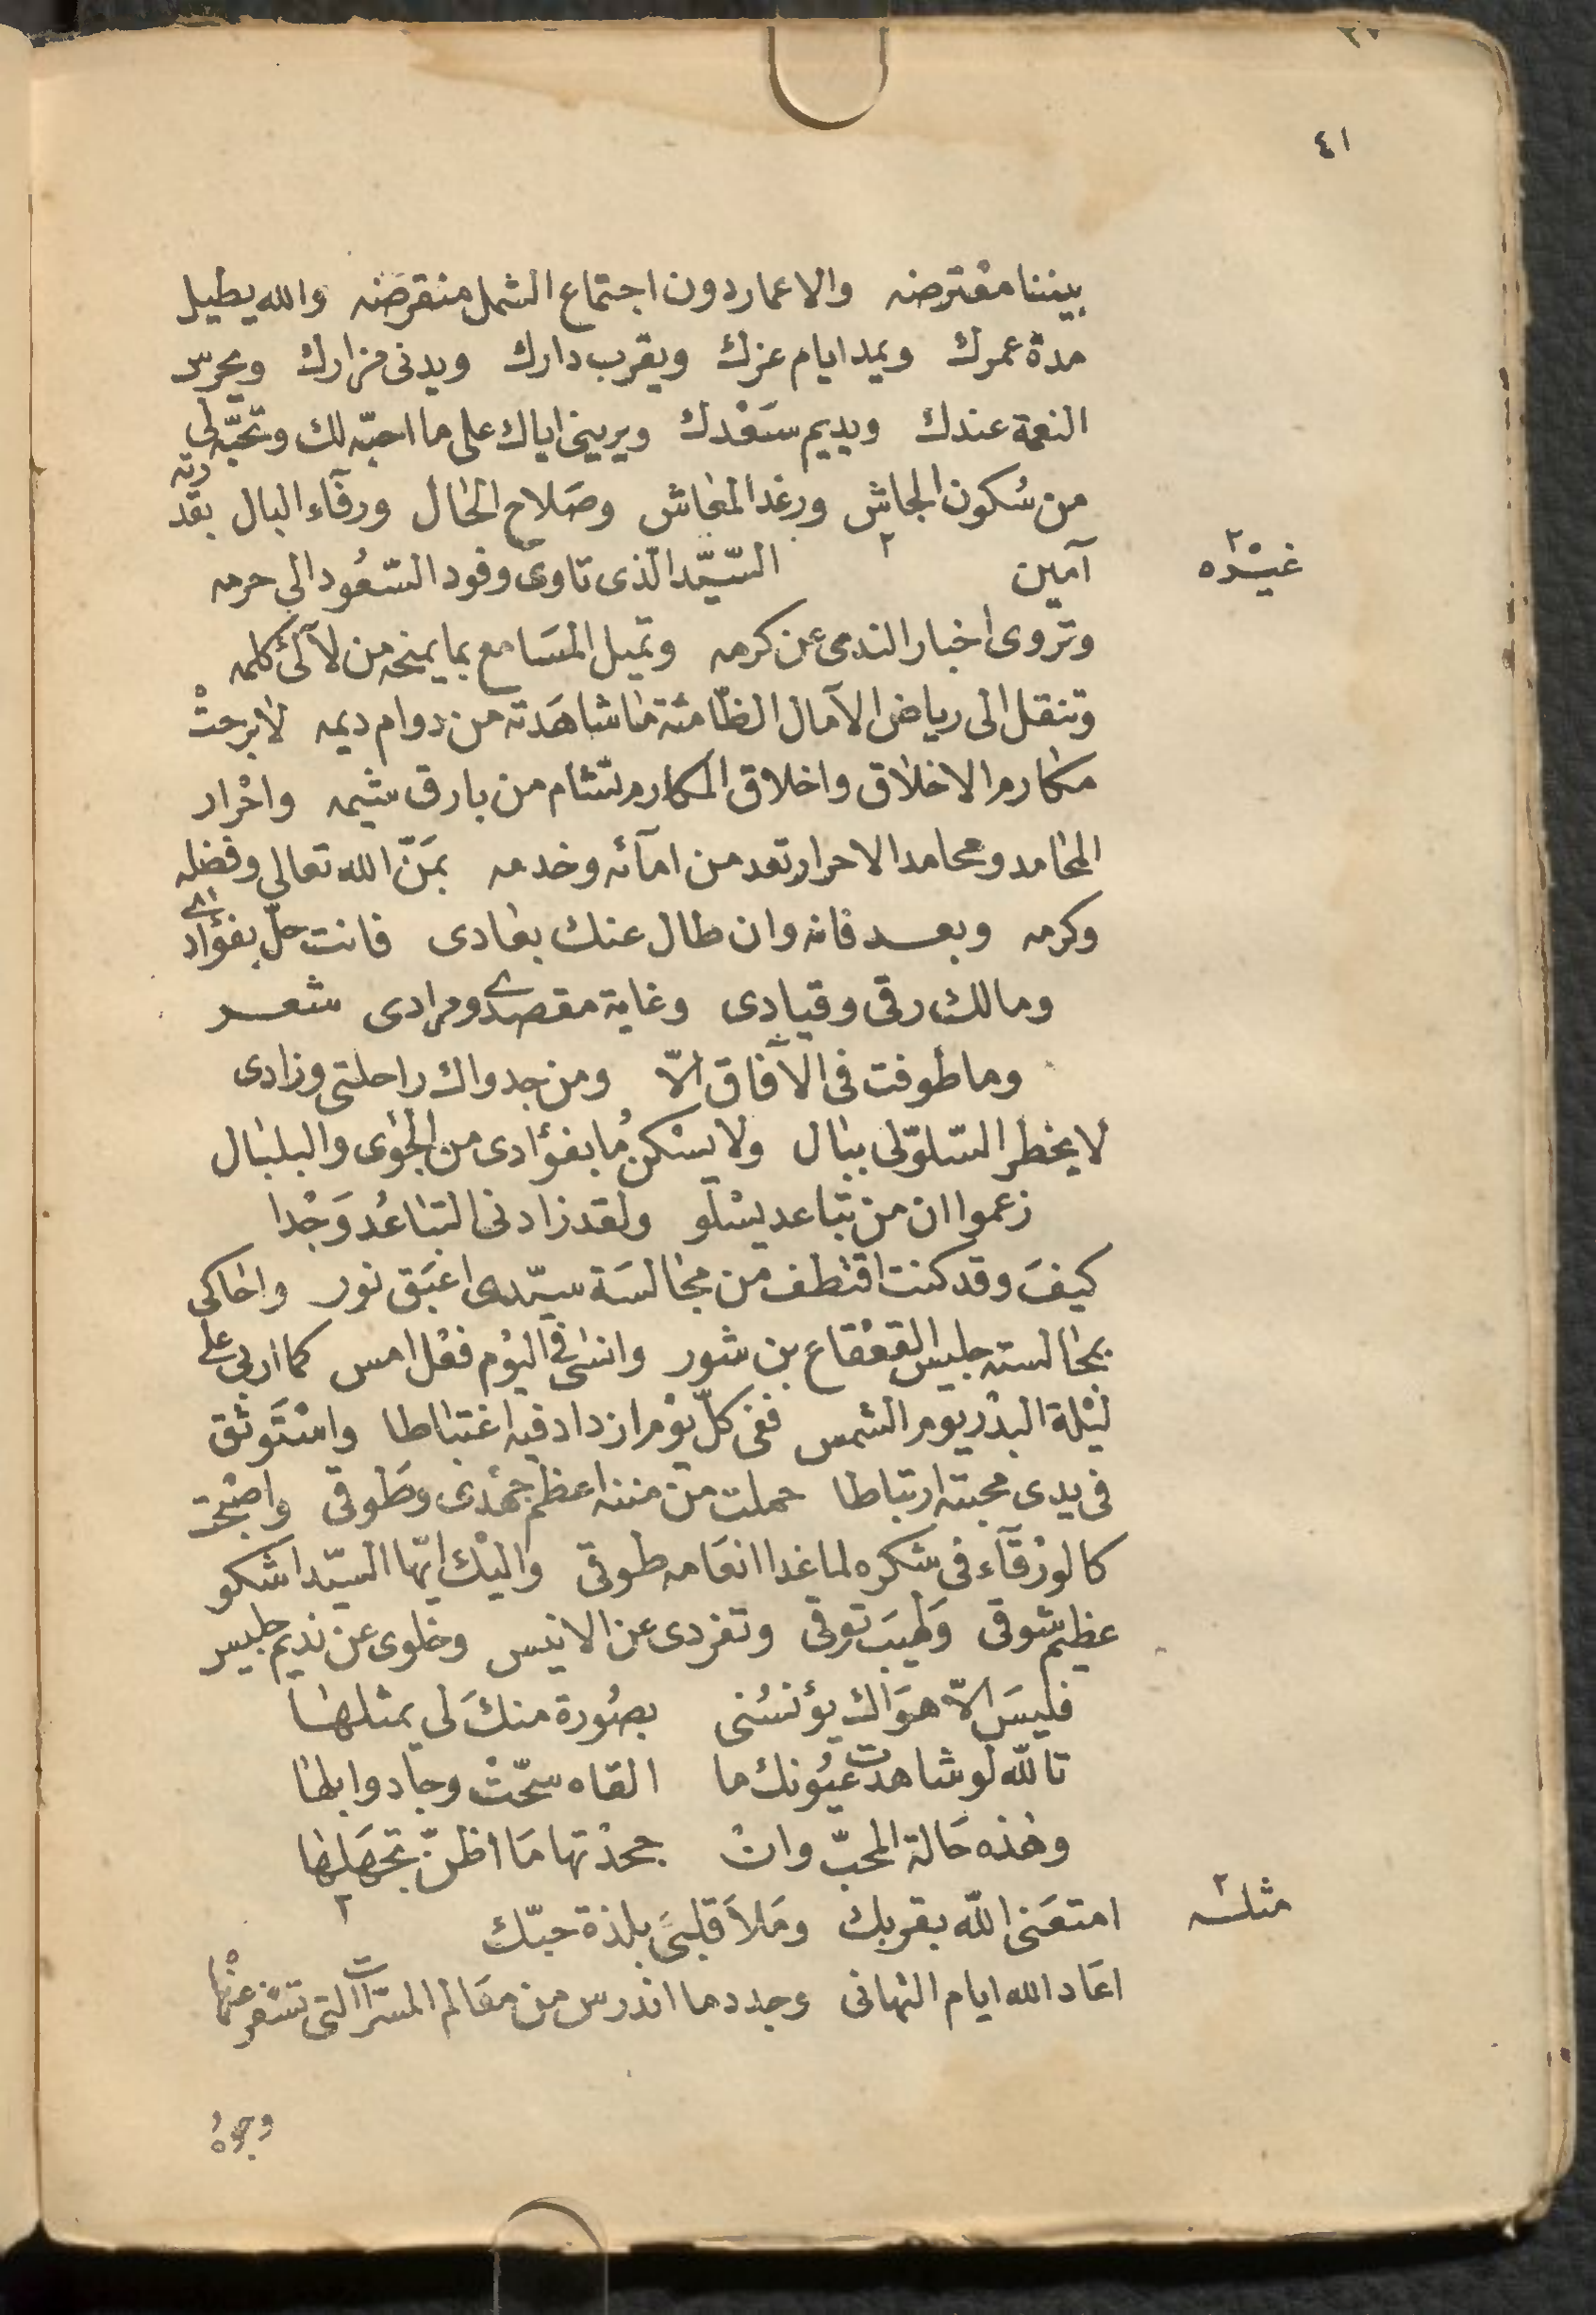 ٤١
بيننا مفترضه والاعمار دون اجتماع الشمل منقرضه والله يطيل
مدة عمرك ويمد ايام عزك ويقرب دارك ويدنى مزارك ويحرس
النعمة عندك ويديم سَعْدك ويرينى اياك على ما احبّه لك وتحبّه لى
من سُكون الجاش ورغد المعاش وصَلاح الحال ورفآء البال بقدرته
آمين ٢ السّيّد الّذى تاوى وفود السّعُود الى حرمه
غيْره ٢
وتروى اخبار الندى عن كرمه وتميل المسَامع بما يمنحه من لآلئ كلمه
وتنقل الى رياض الآمال الظامئة ما شاهَدته من دوام ديمه لا برحتْ
مكارم الاخلاق واخلاق المكارم تشام من بارق شيمه واحْرار
المحامد ومحامد الاحرار تعد من امآئه وخدمه بمَنّ الله تعالى وفضله
وكرمه وبعد فانه وان طال عنك بعادى فانت حلّ بفؤادى
ومالك رقى وقيادى وغاية مقصدى ومرادى شعر
وما طوفت فى الآفاق الّا ومن جدواك راحلتى وزادى
لا يخطر السّلوّ لى ببال ولا يسْكن ما بفؤادى من الجوى والبلبال
زعموا ان من تباعد يسْلو ولقد زادنى التباعُد وَجْدا
كيفَ وقد كنت اقتطف من مجالسَة سيّدى اعبَق نور واحاكى
بمجالسته جليس القعْقاع بن شور وانسى فى اليوْم فعْل امس كما اربى على
ليْلة البدْر يوم الشمس ففى كلّ يوْم ازداد فيه اغتباطا واسْتَوثق
فى يدى محبته ارتباطا حملت من مننه اعظم جهْدى وطَوقى واصْبحت
كالورْقآء فى شكره لما غدا انعَامه طوقى واليْك ايّها السيّد اشكو
عظيم شوقى وَلهيَب توقى وتفردى عن الانيس وخلوى عن نديم جليس
فليسَ الّا هوَاك يؤنسُنى بصُورة منكَ لى يمثلها
تاللّه لو شاهدت عيُونك ما القاه سحّتْ وجاد وابلها
وهٰذه حَالة المحبّ وانْ جحدْتها مَا اظنّ تجهَلها
٢
مثله ٢
امتعَنى اللّه بقربك ومَلأَ قلبىَ بلذة حبّك
اعَاد الله ايام التهانى وجدد ما اندرس من معَالم المسَرات التى تسْفر عنْها
وجوهُ